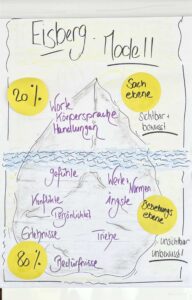 Eisberg-Modell
20%
Sach
ebene
Worte
Körpersprache
Handlungen
sichtbar +
bewusst
gefühle
Werte +
Normen
Konflikte
Ängste
Persönlichkeit
Beziehungs
ebene
Erlebnisse
Triebe
unsichtbar
unbewusst
80%
Bedürfnisse